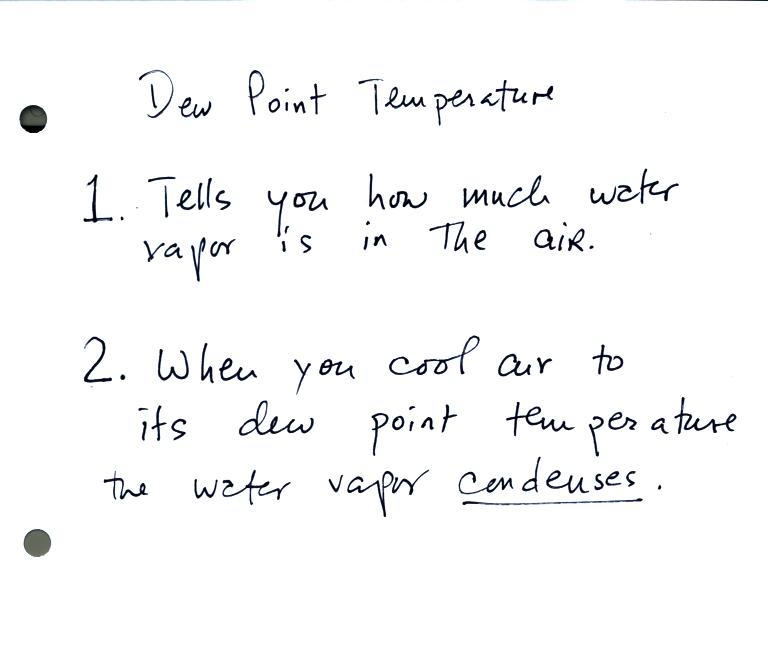 Dew Point Temperature
1. Tells you how much water
vapor is in The aiR.
2. When you cool air to
its dew point temperature
the water vapor condenses.